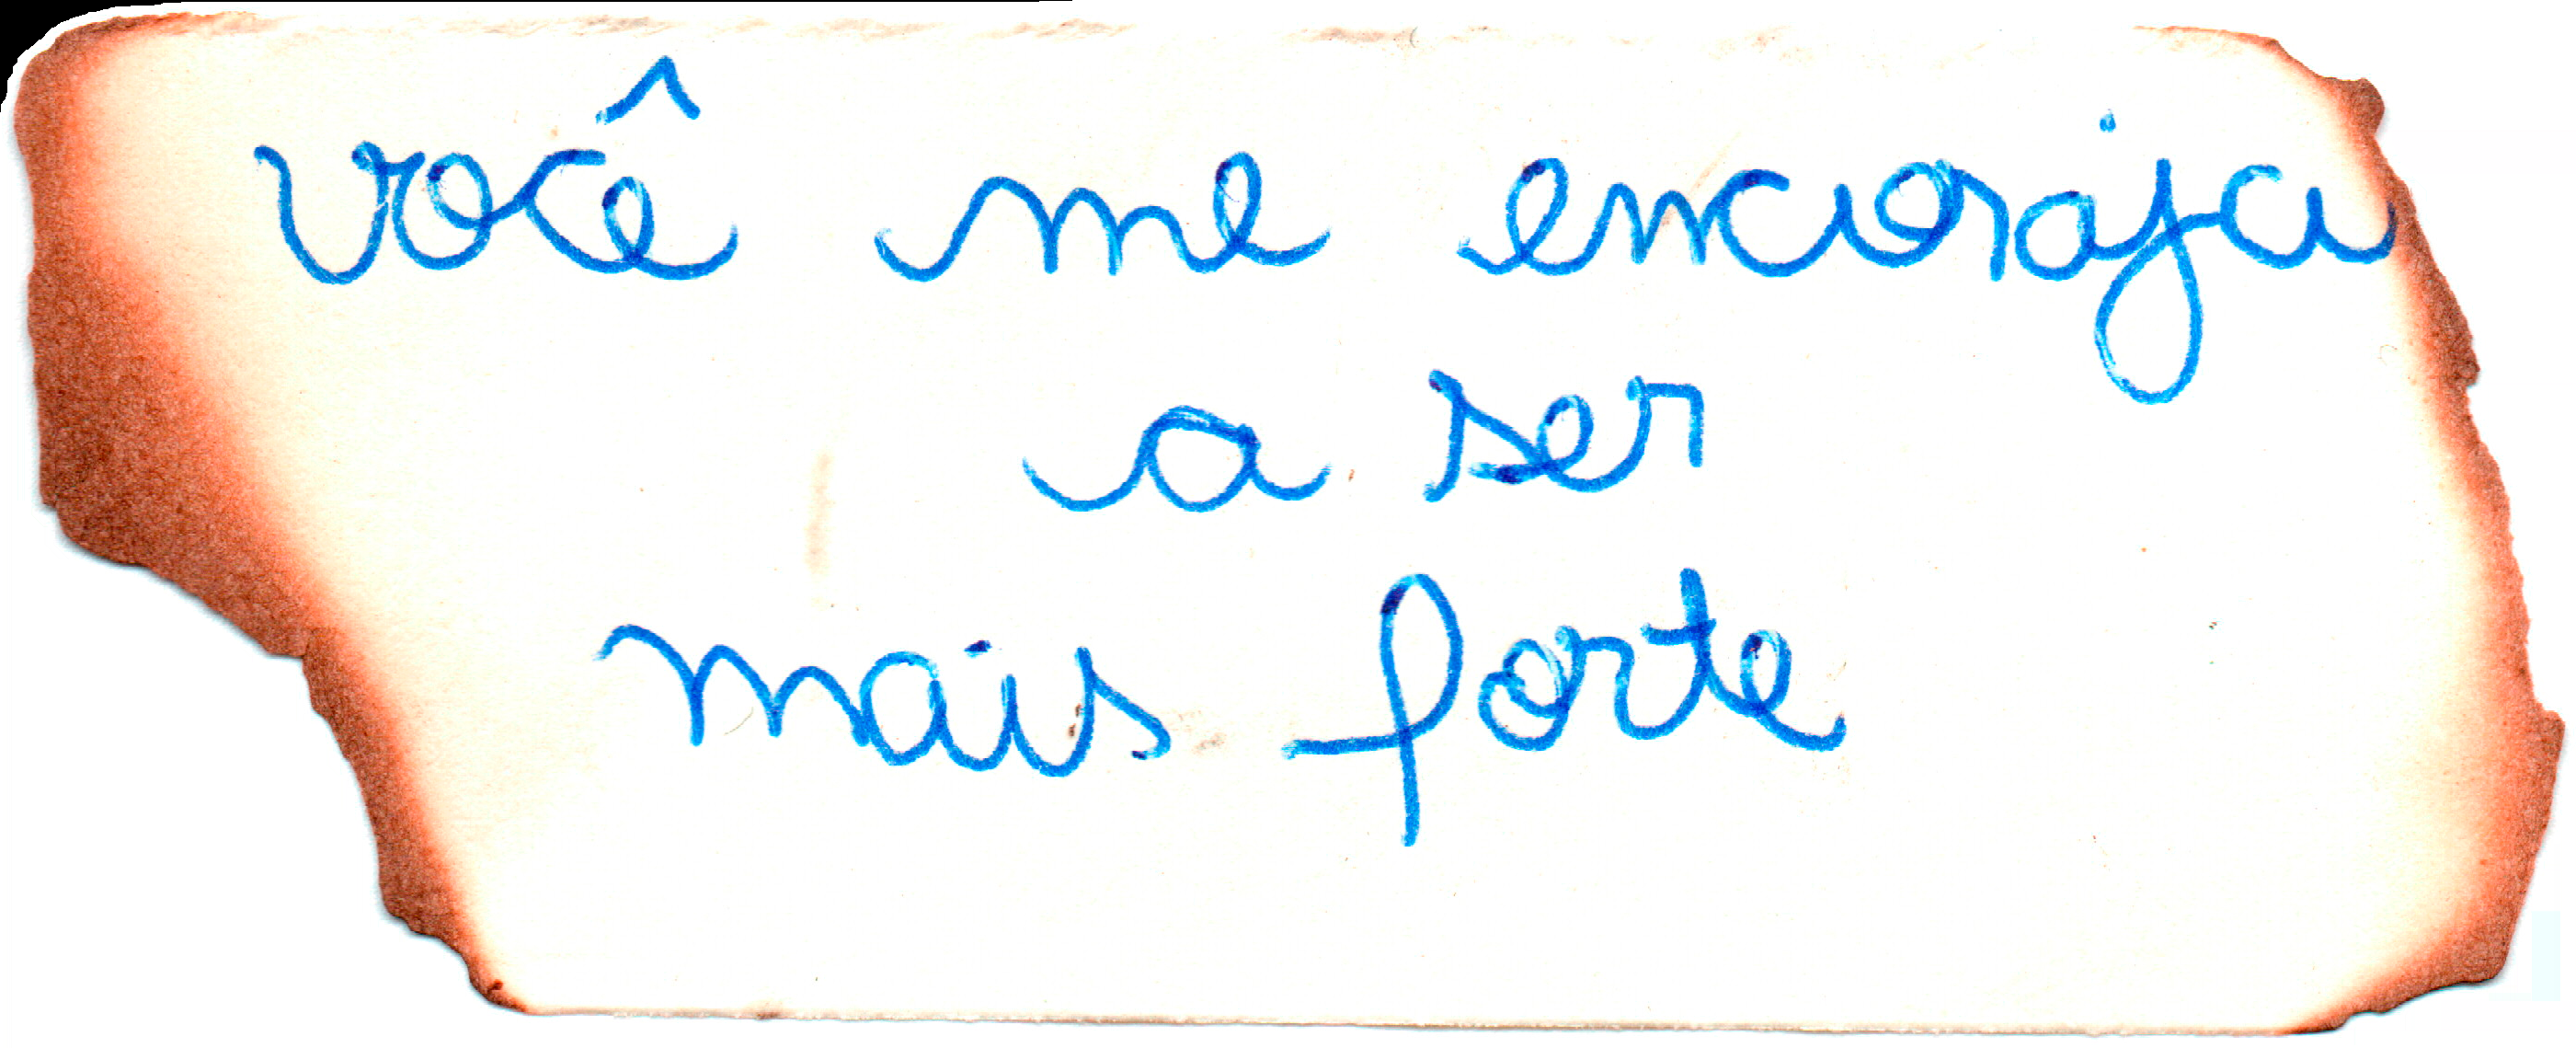 você me encoraja
a ser
mais forte